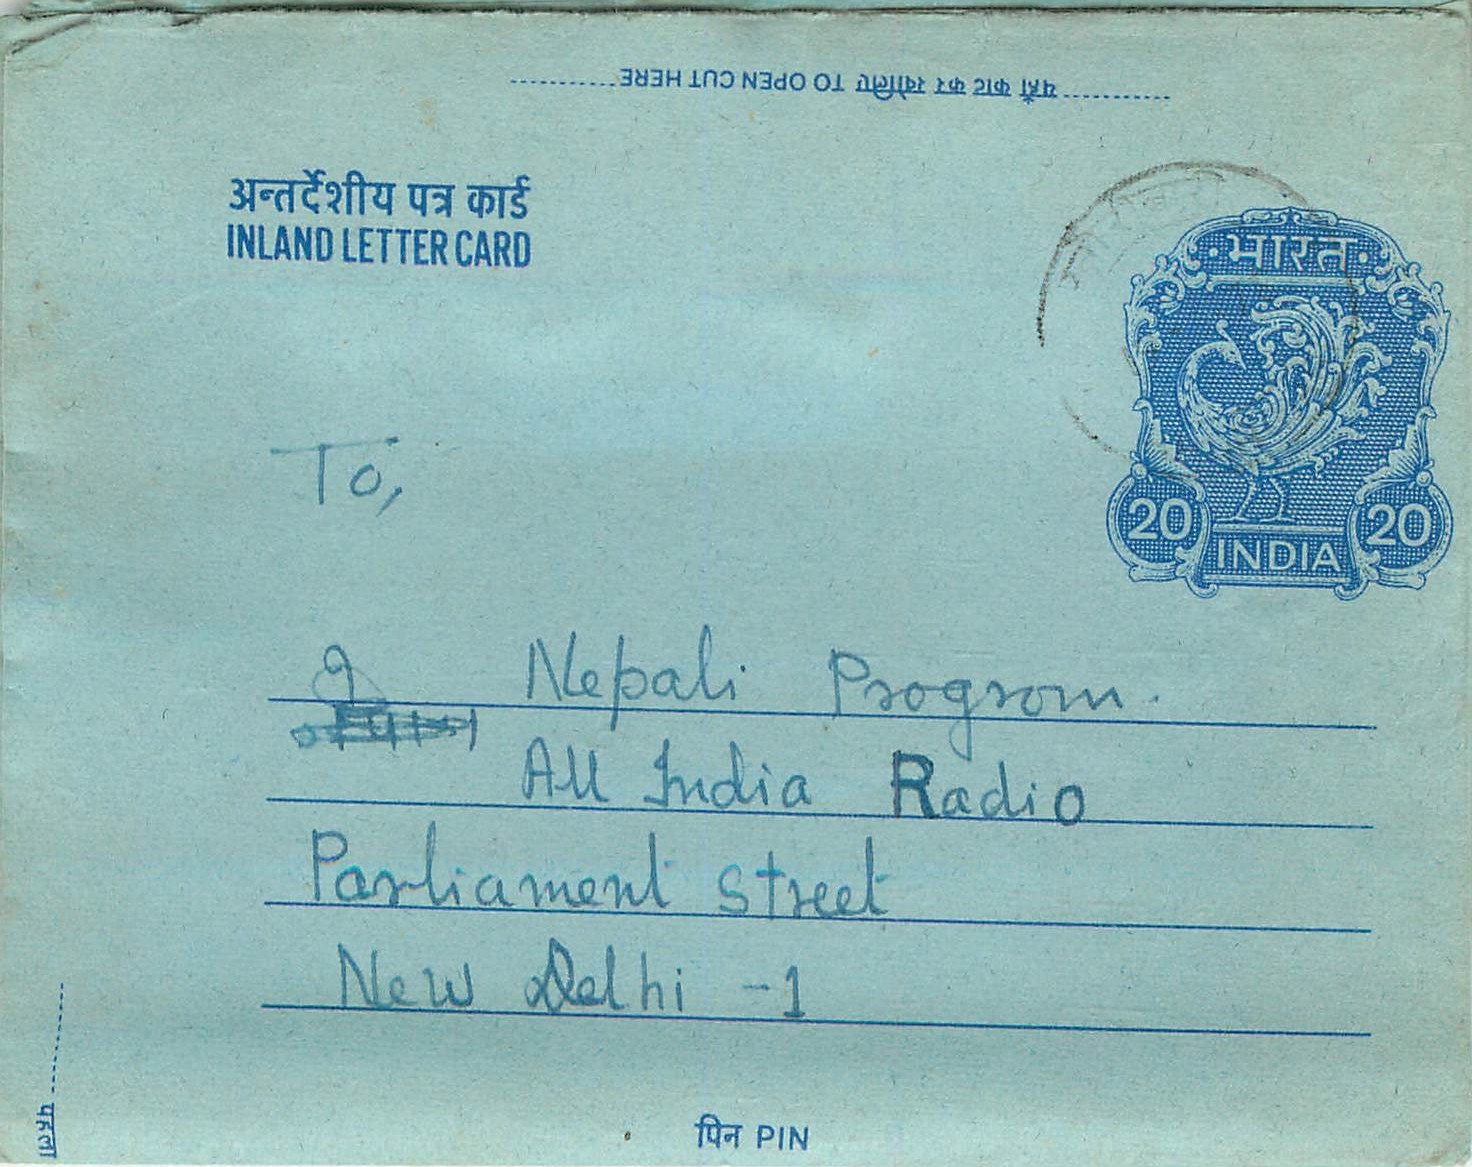 यहाँ काट कर खोलिए TO OPEN CUT HERE
अन्तर्देशीय पत्र कार्ड
INLAND LETTER CARD
भारत
20 20
INDIA
To,
Nepali Program.
All India Radio
Parliament Street
New Delhi -1
पिन PIN
पहला